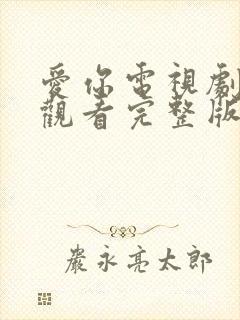 愛你電視劇
觀看完整版
嚴永亮太郎